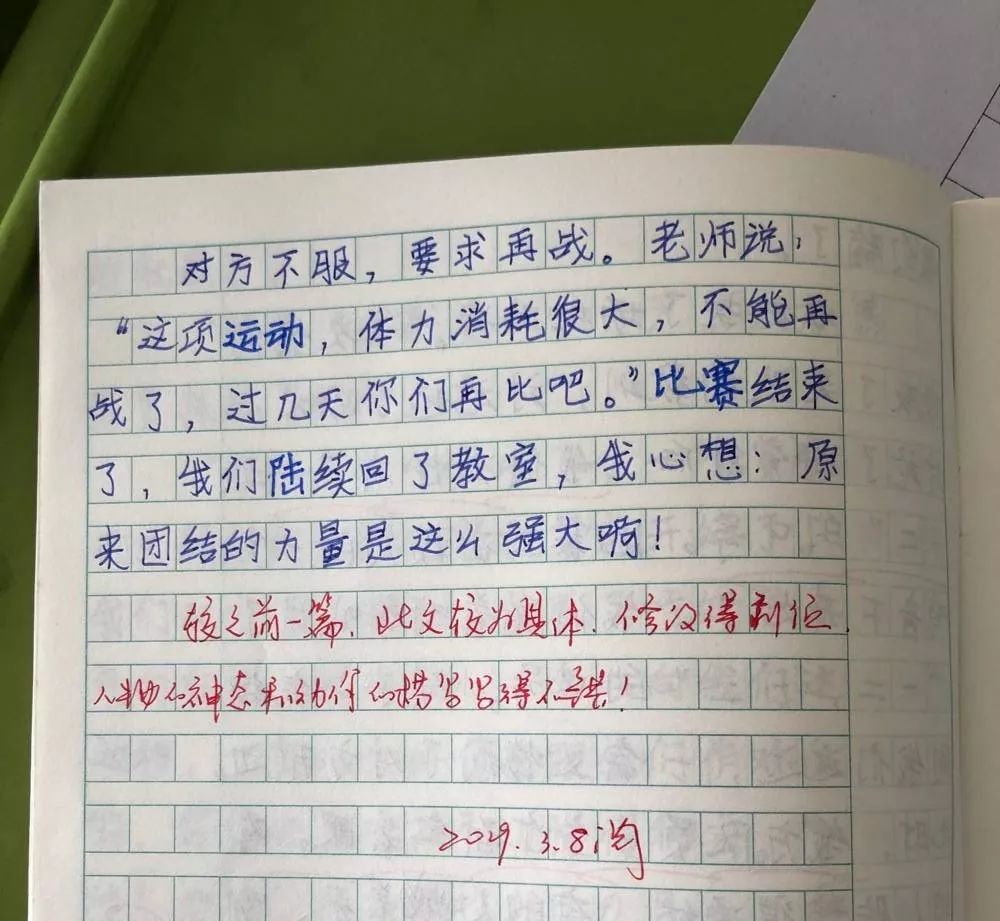 对方不服，要求再战。老师说：
“这项运动，体力消耗很大，不能再
战了，过几天你们再比吧。”比赛结束
了，我们陆续回了教室，我心想：原
来团结的力量是这么强大啊！
较之前一篇，此文较为具体，修改得到位，
人物的神态和动作的描写写得不错！
3.8